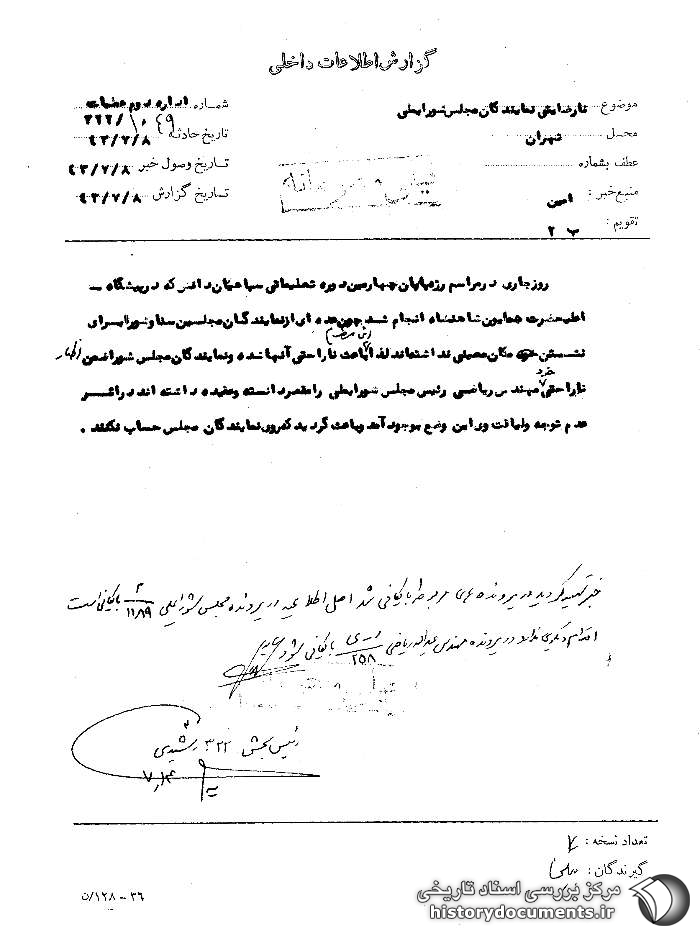 گزارش اطلاعات داخلی
موضوع نارضایتی نمایندگان مجلس شورایملی
شماره اداره دوم عملیات
۳۲۲/۱۰۴۹
محل تهران
تاریخ حادثه ۴۳/۷/۸
عطف بشماره
تاریخ وصول خبر ۴۳/۷/۸
منبع خبر: امین
تاریخ گزارش ۴۳/۷/۸
تقویم: ب ۲
خیلی محرمانه
روز جاری در مراسم رژه پایان چهارمین دوره تعلیماتی سپاهیان دانش که در پیشگاه
اعلیحضرت همایون شاهنشاه انجام شد چون عده ای از نمایندگان مجلسین سنا و شورا برای
نشستن خود مکان معینی نداشته‌اند لذا این منظم باعث ناراحتی آنها شده و نمایندگان مجلس شورا ضمن اظهار
ناراحتی خود مهندس ریاضی رئیس مجلس شورایملی را مقصر دانسته و عقیده داشته اند در اثر
عدم توجه ولیاقت وی این وضع بوجود آمد وباعث گردید که روی نمایندگان مجلس حساب نکنند .
خبر تهیه گردید در پرونده های مربوطه بایگانی شد اصل اطلاعیه در پرونده مجلس شورایملی ۳/۱۱۸۹ بایگانی است
اقدام دیگری ندارد در پرونده مهندس عبداله ریاضی ر-ی/۲۵۸ بایگانی شود
رئیس بخش ۳۲۲ رشیدی
تعداد نسخه: ۲
گیرندگان:
۳۶ - ۱۲۸/ن
مرکز بررسی اسناد تاریخی
historydocuments.ir